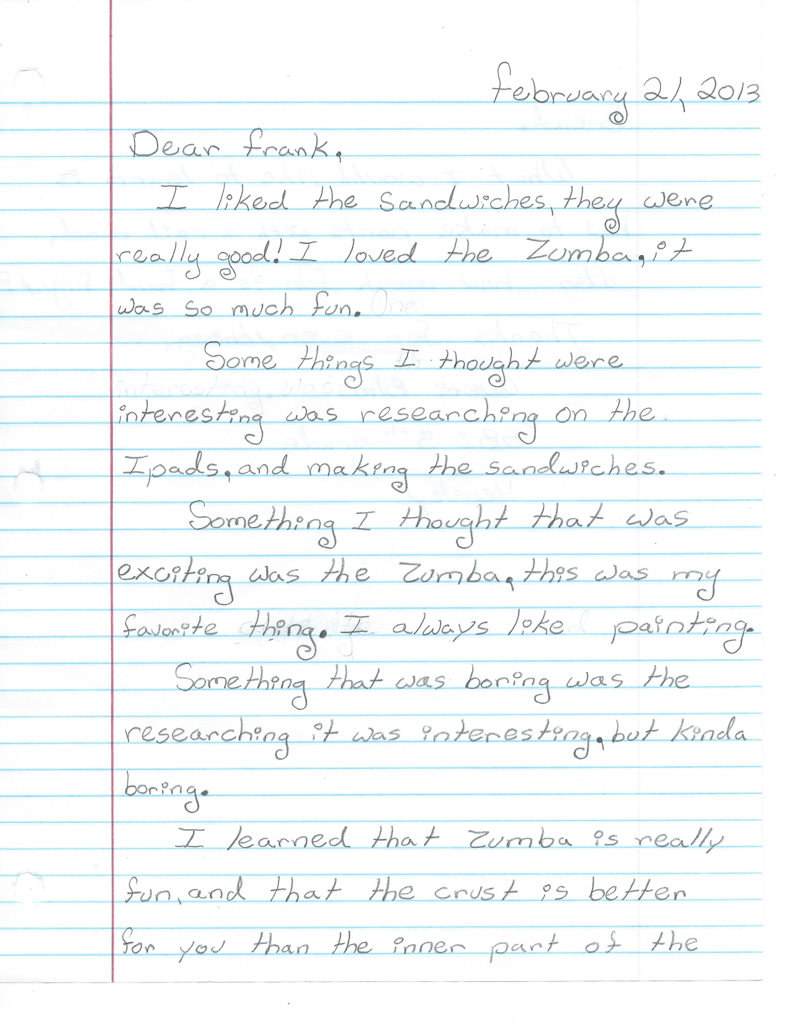 february 21, 2013
Dear frank,
I liked the sandwiches, they were
really good! I loved the Zumba, it
was so much fun. One
Some things I thought were
interesting was researching on the
Ipads, and making the sandwiches.
Something I thought that was
exciting was the Zumba, this was my
favorite thing. I always like painting.
Something that was boring was the
researching it was interesting, but kinda
boring.
I learned that Zumba is really
fun, and that the crust is better
for you than the inner part of the